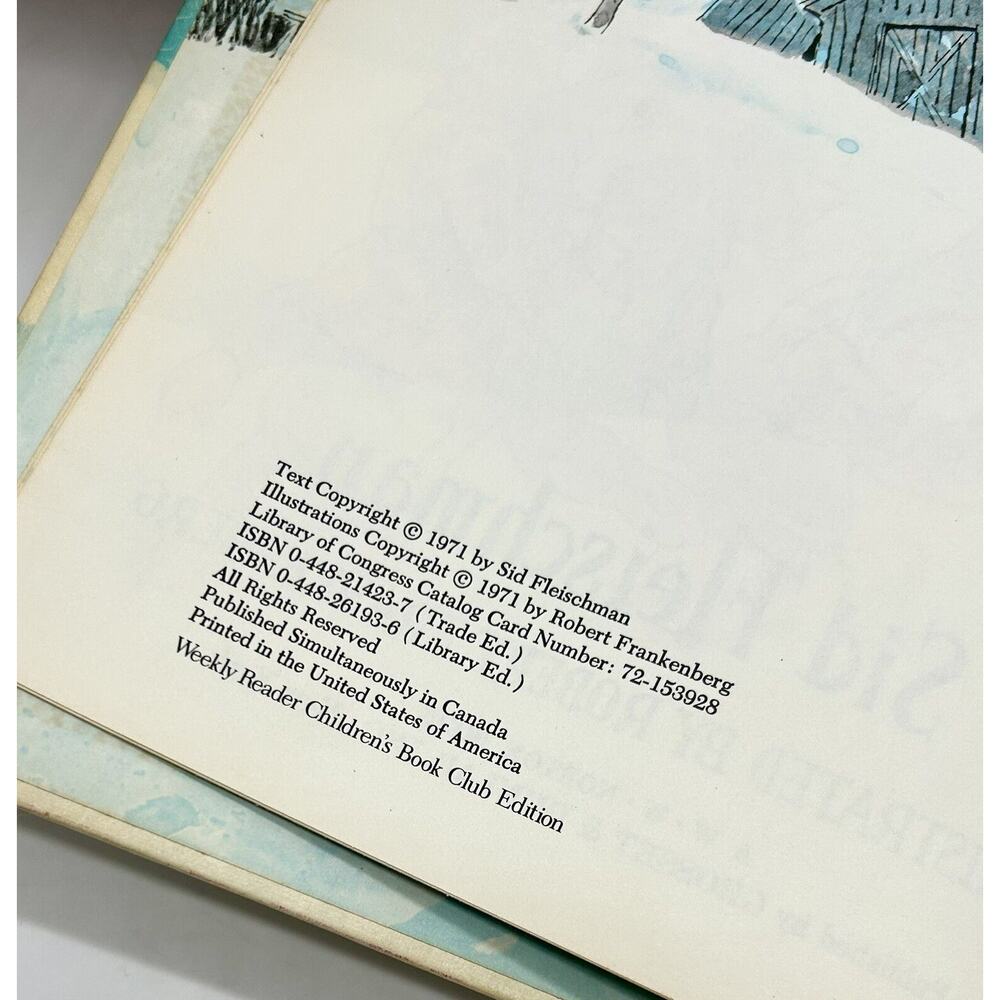 Text Copyright © 1971 by Sid Fleischman
Illustrations Copyright © 1971 by Robert Frankenberg
Library of Congress Catalog Card Number: 72-153928
ISBN 0-448-21423-7 (Trade Ed.)
ISBN 0-448-26193-6 (Library Ed.)
All Rights Reserved
Published Simultaneously in Canada
Printed in the United States of America
Weekly Reader Children's Book Club Edition